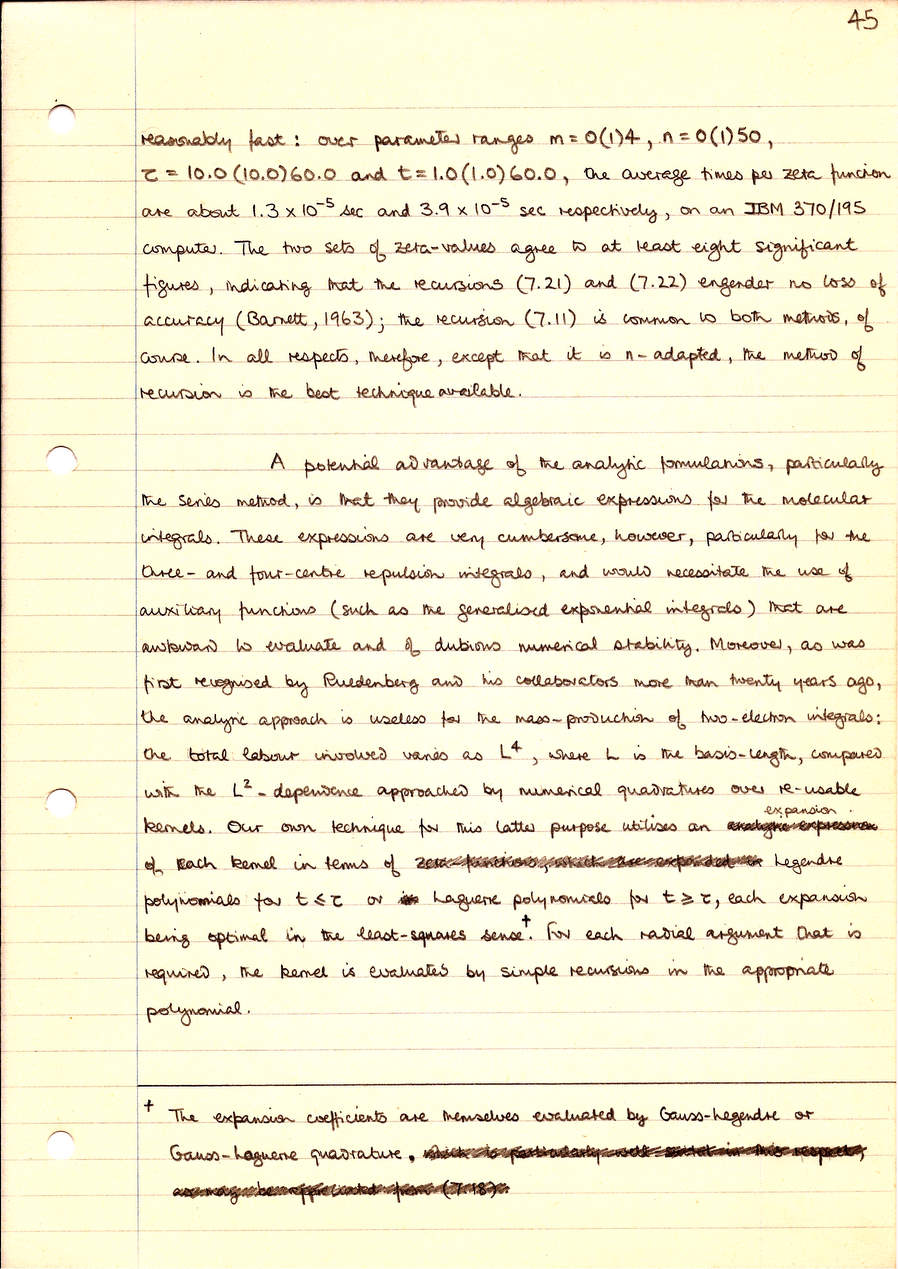 45
reasonably fast : over parameter ranges m = 0(1)4, n = 0(1)50,
τ = 10.0(10.0)60.0 and t = 1.0(1.0)60.0, the average times per zeta function
are about 1.3 x 10⁻⁵ sec and 3.9 x 10⁻⁵ sec respectively, on an IBM 370/195
computer. The two sets of zeta-values agree to at least eight significant
figures, indicating that the recursions (7.21) and (7.22) engender no loss of
accuracy (Barnett, 1963); the recursion (7.11) is common to both methods, of
course. In all respects, therefore, except that it is n-adapted, the method of
recursion is the best technique available.
A potential advantage of the analytic formulations, particularly
the series method, is that they provide algebraic expressions for the molecular
integrals. These expressions are very cumbersome, however, particularly for the
three- and four-centre repulsion integrals, and would necessitate the use of
auxiliary functions (such as the generalised exponential integrals) that are
awkward to evaluate and of dubious numerical stability. Moreover, as was
first recognised by Ruedenberg and his collaborators more than twenty years ago,
the analytic approach is useless for the mass-production of two-electron integrals:
the total labour involved varies as L⁴, where L is the basis-length, compared
with the L²-dependence approached by numerical quadratures over re-usable
expansion
kernels. Our own technique for this latter purpose utilises an analytic expression
of each kernel in terms of zeta functions, which are expanded in Legendre
polynomials for t ≤ τ or in Laguerre polynomials for t ≥ τ, each expansion
being optimal in the least-squares sense†. For each radial argument that is
required, the kernel is evaluated by simple recursions in the appropriate
polynomial.
† The expansion coefficients are themselves evaluated by Gauss-Legendre or
Gauss-Laguerre quadrature. which is particularly well suited in this respect,
as may be appreciated from (7.18).